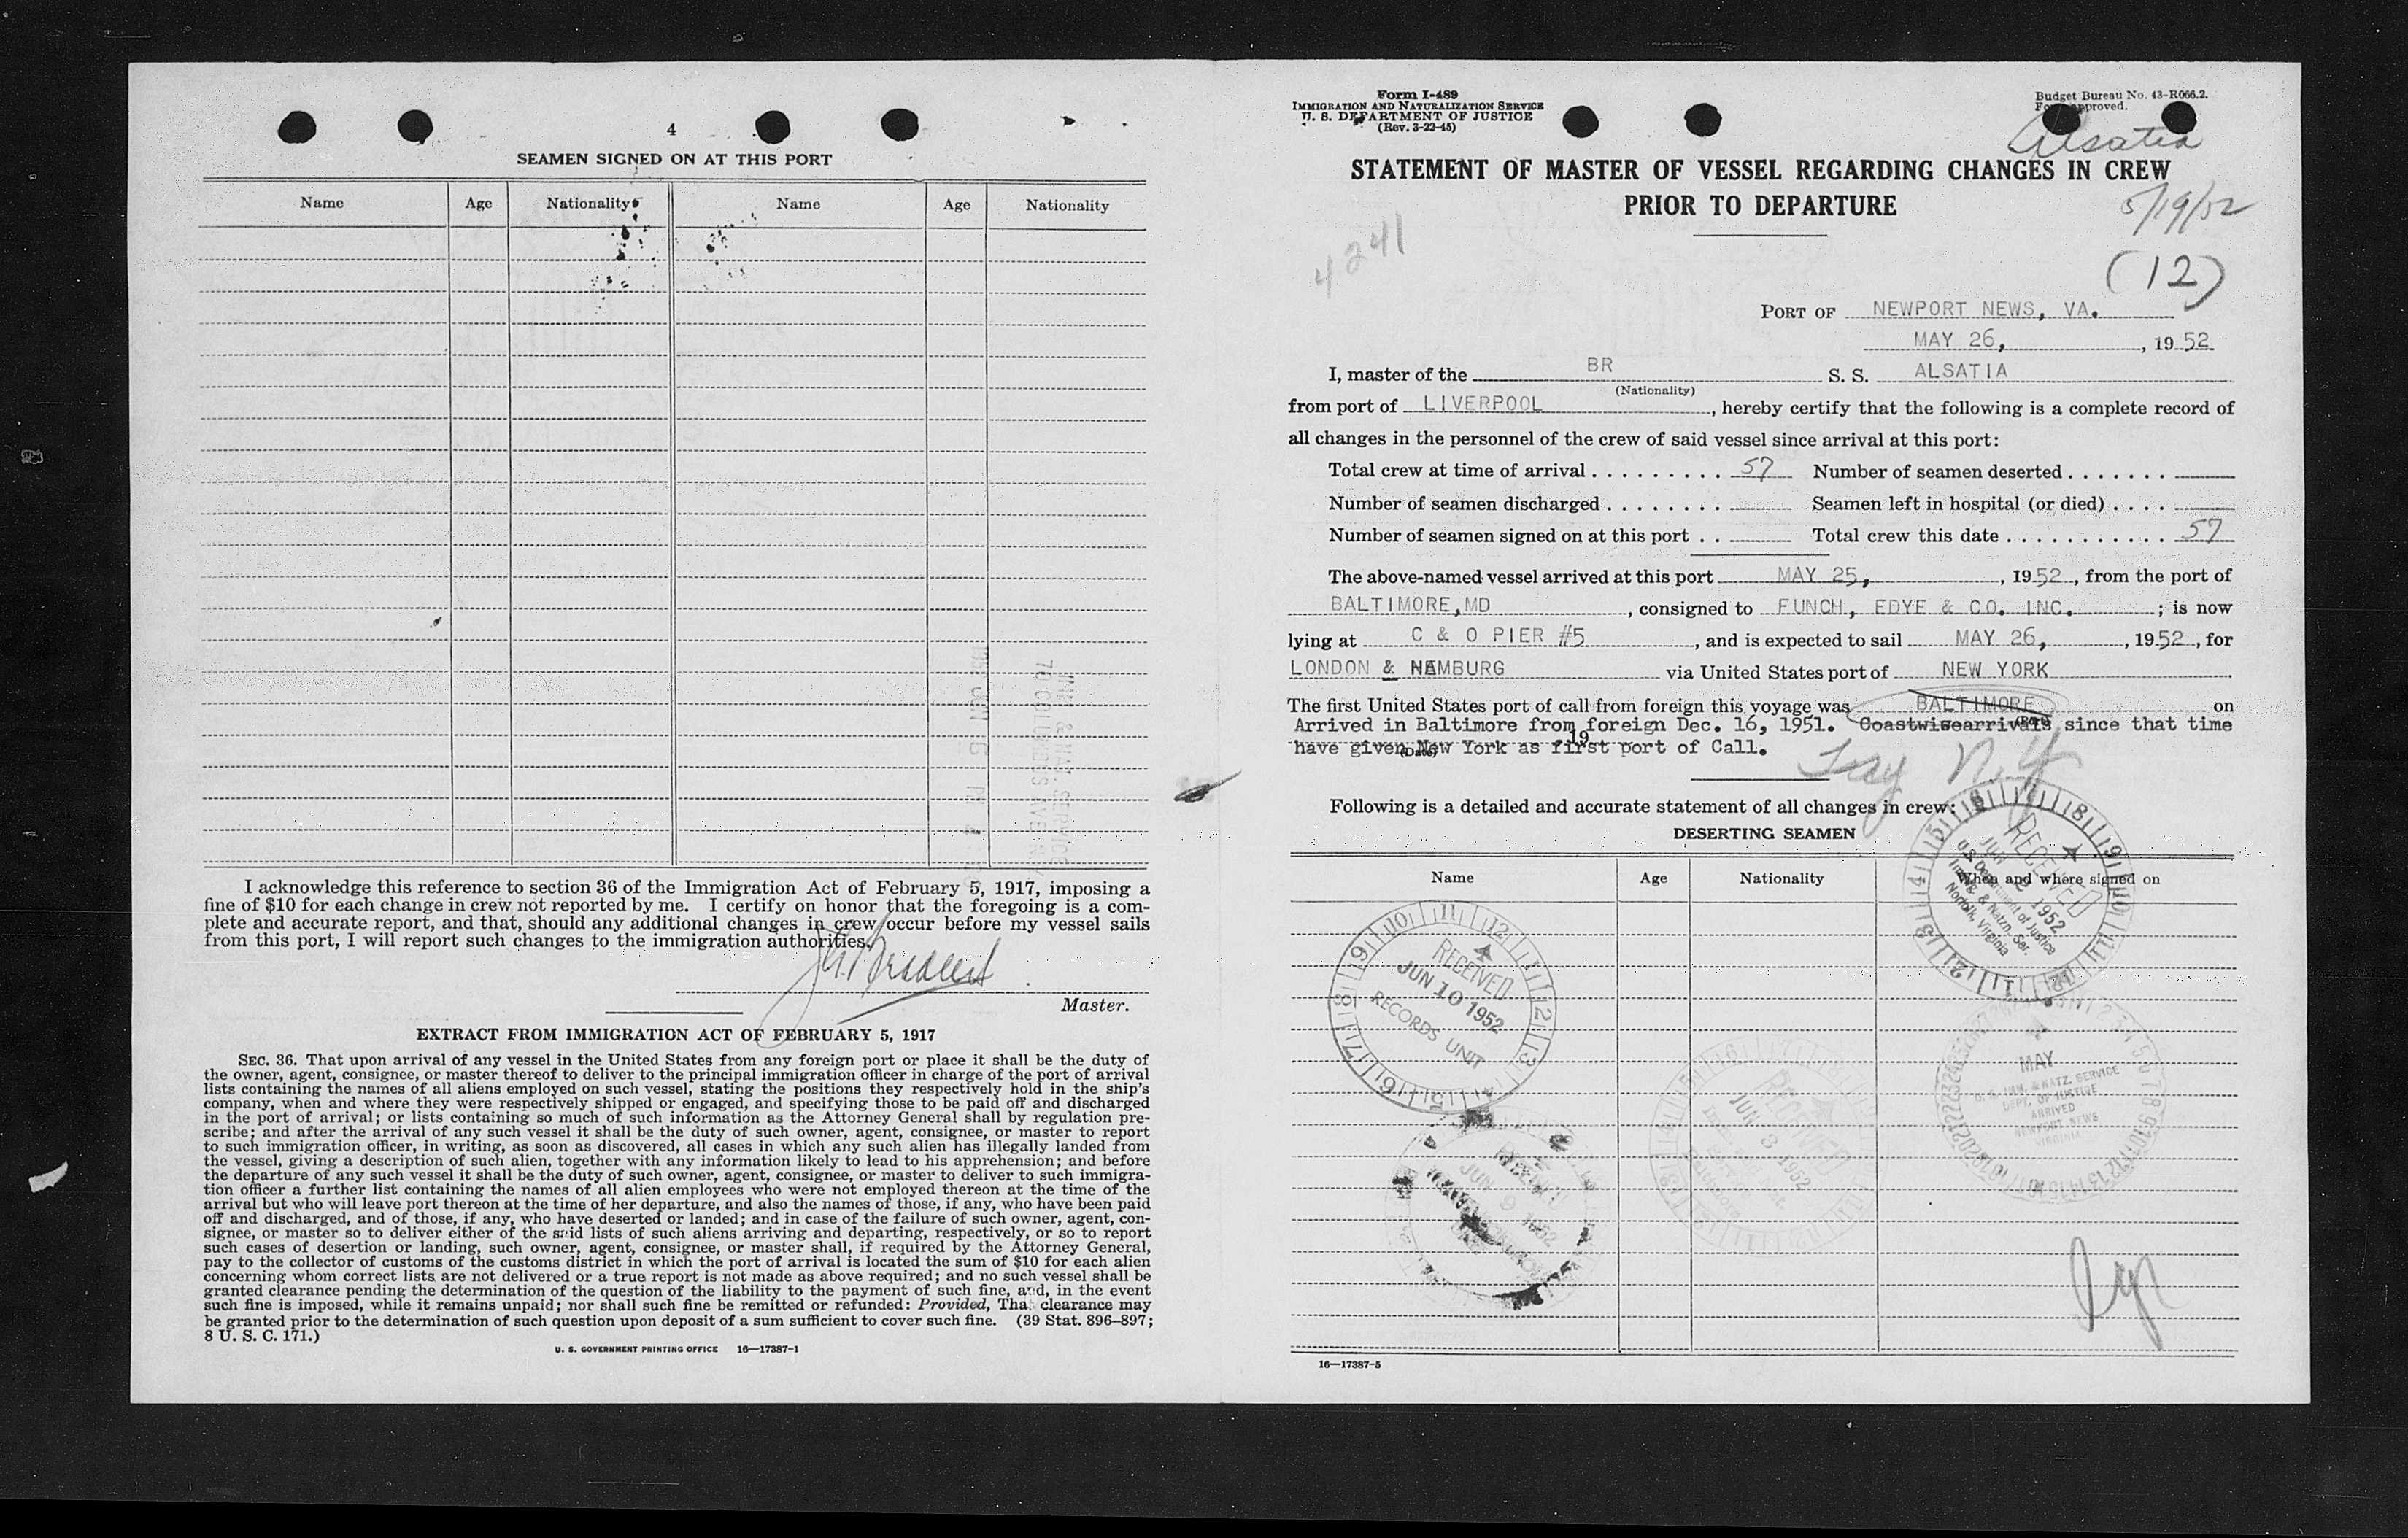 4
SEAMEN SIGNED ON AT THIS PORT
Name Age Nationality Name Age Nationality
I acknowledge this reference to section 36 of the Immigration Act of February 5, 1917, imposing a
fine of $10 for each change in crew not reported by me. I certify on honor that the foregoing is a com-
plete and accurate report, and that, should any additional changes in crew occur before my vessel sails
from this port, I will report such changes to the immigration authorities.
Master.
EXTRACT FROM IMMIGRATION ACT OF FEBRUARY 5, 1917
SEC. 36. That upon arrival of any vessel in the United States from any foreign port or place it shall be the duty of
the owner, agent, consignee, or master thereof to deliver to the principal immigration officer in charge of the port of arrival
lists containing the names of all aliens employed on such vessel, stating the positions they respectively hold in the ship's
company, when and where they were respectively shipped or engaged, and specifying those to be paid off and discharged
in the port of arrival; or lists containing so much of such information as the Attorney General shall by regulation pre-
scribe; and after the arrival of any such vessel it shall be the duty of such owner, agent, consignee, or master to report
to such immigration officer, in writing, as soon as discovered, all cases in which any such alien has illegally landed from
the vessel, giving a description of such alien, together with any information likely to lead to his apprehension; and before
the departure of any such vessel it shall be the duty of such owner, agent, consignee, or master to deliver to such immigra-
tion officer a further list containing the names of all alien employees who were not employed thereon at the time of the
arrival but who will leave port thereon at the time of her departure, and also the names of those, if any, who have been paid
off and discharged, and of those, if any, who have deserted or landed; and in case of the failure of such owner, agent, con-
signee, or master so to deliver either of the said lists of such aliens arriving and departing, respectively, or so to report
such cases of desertion or landing, such owner, agent, consignee, or master shall, if required by the Attorney General,
pay to the collector of customs of the customs district in which the port of arrival is located the sum of $10 for each alien
concerning whom correct lists are not delivered or a true report is not made as above required; and no such vessel shall be
granted clearance pending the determination of the question of the liability to the payment of such fine, and, in the event
such fine is imposed, while it remains unpaid; nor shall such fine be remitted or refunded: Provided, That clearance may
be granted prior to the determination of such question upon deposit of a sum sufficient to cover such fine. (39 Stat. 896–897;
8 U. S. C. 171.)
U. S. GOVERNMENT PRINTING OFFICE 16—17387-1
Form I-489
IMMIGRATION AND NATURALIZATION SERVICE
U. S. DEPARTMENT OF JUSTICE
(Rev. 3-22-45)
Budget Bureau No. 43-R066.2.
Form approved.
Alsatia
STATEMENT OF MASTER OF VESSEL REGARDING CHANGES IN CREW
PRIOR TO DEPARTURE
5/19/52
4241
(12)
PORT OF NEWPORT NEWS, VA.
MAY 26, , 19 52
I, master of the BR S. S. ALSATIA
(Nationality)
from port of LIVERPOOL , hereby certify that the following is a complete record of
all changes in the personnel of the crew of said vessel since arrival at this port:
Total crew at time of arrival . . . . . . . . . 57 Number of seamen deserted . . . . . . .
Number of seamen discharged . . . . . . . . Seamen left in hospital (or died) . . . .
Number of seamen signed on at this port . . Total crew this date . . . . . . . . . . . 57
The above-named vessel arrived at this port MAY 25, , 19 52 , from the port of
BALTIMORE,MD , consigned to FUNCH, EDYE & CO. INC. ; is now
lying at C & O PIER #5 , and is expected to sail MAY 26, , 19 52 , for
LONDON & HAMBURG via United States port of NEW YORK
The first United States port of call from foreign this voyage was BALTIMORE on
(Port)
Arrived in Baltimore from foreign Dec. 16, 1951. Coastwisearrivals since that time
19
have given New York as first port of Call.
(Date)
N.Y
Following is a detailed and accurate statement of all changes in crew:
DESERTING SEAMEN
Name Age Nationality When and where signed on
RECEIVED
JUN 2 1952
U.S. Department of Justice
Immig. & Natzn. Ser.
Norfolk, Virginia
RECEIVED
JUN 10 1952
RECORDS UNIT
MAY
U. S. IMM. & NATZ. SERVICE
DEPT. OF JUSTICE
ARRIVED
NEWPORT NEWS
VIRGINIA
RECEIVED
JUN 3 1952
JUN 9 1952
16—17387-5